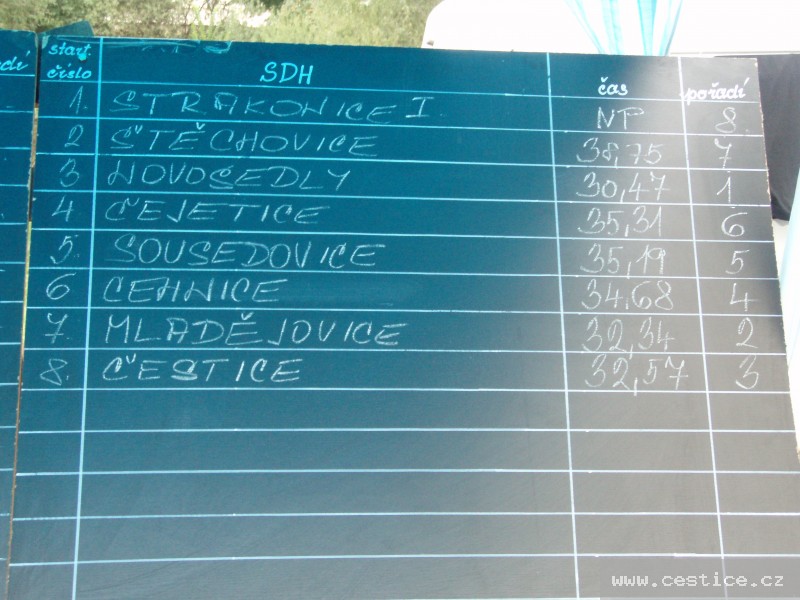 adí
start. číslo SDH čas pořadí
1. STRAKONICE I. NP 8.
2 ŠTĚCHOVICE 38,75 7
3 NOVOSEDLY 30,47 1
4 ČEJETICE 35,31 6
5. SOUSEDOVICE 35,19 5
6 CEHNICE 34.68 4
7. MLADĚJOVICE 32,34 2
8. ČESTICE 32,57 3
www.cestice.cz